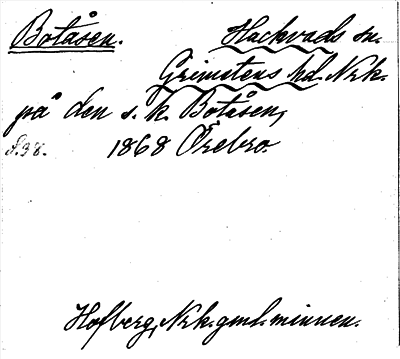 Botåsen. Hackvads sn.
Grimstens hd. Nrk.
på den s. k. Botåsen,
S.38. 1868 Örebro.
Hofberg, Nrk. gml. minnen.